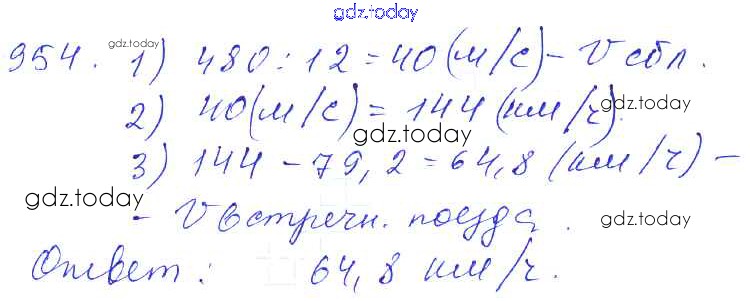 gdz.today
954. 1) 480 : 12 = 40 (м/с) – V сбл.
gdz.today
gdz.today
2) 40 (м/с) = 144 (км/ч).
gdz.today
gdz.today
3) 144 – 79,2 = 64,8 (км/ч) –
gdz.today
– V встречн. поезда.
gdz.today
Ответ: 64,8 км/ч.